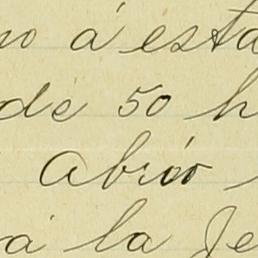 no á esta
de 50 h
Abrió
á la Je